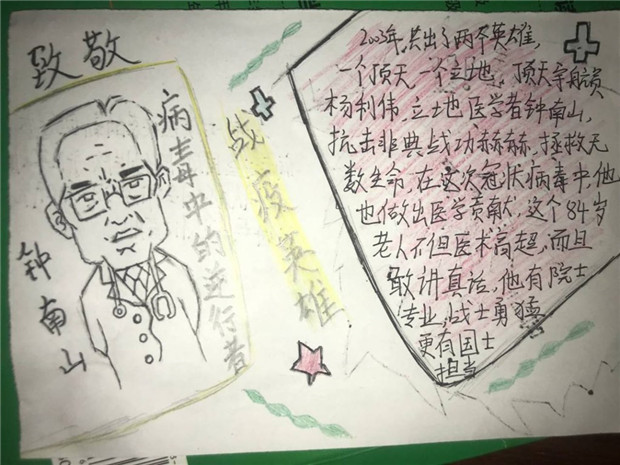 致敬
病毒中的逆行者
钟南山
战疫英雄
2003年,共出了两个英雄,
一个顶天一个立地,顶天宇航员
杨利伟,立地医学者钟南山,
抗击非典战功赫赫,拯救无
数生命,在这次冠状病毒中,他
也做出医学贡献,这个84岁
老人不但医术高超,而且
敢讲真话,他有院士
专业,战士勇猛
更有国士
担当